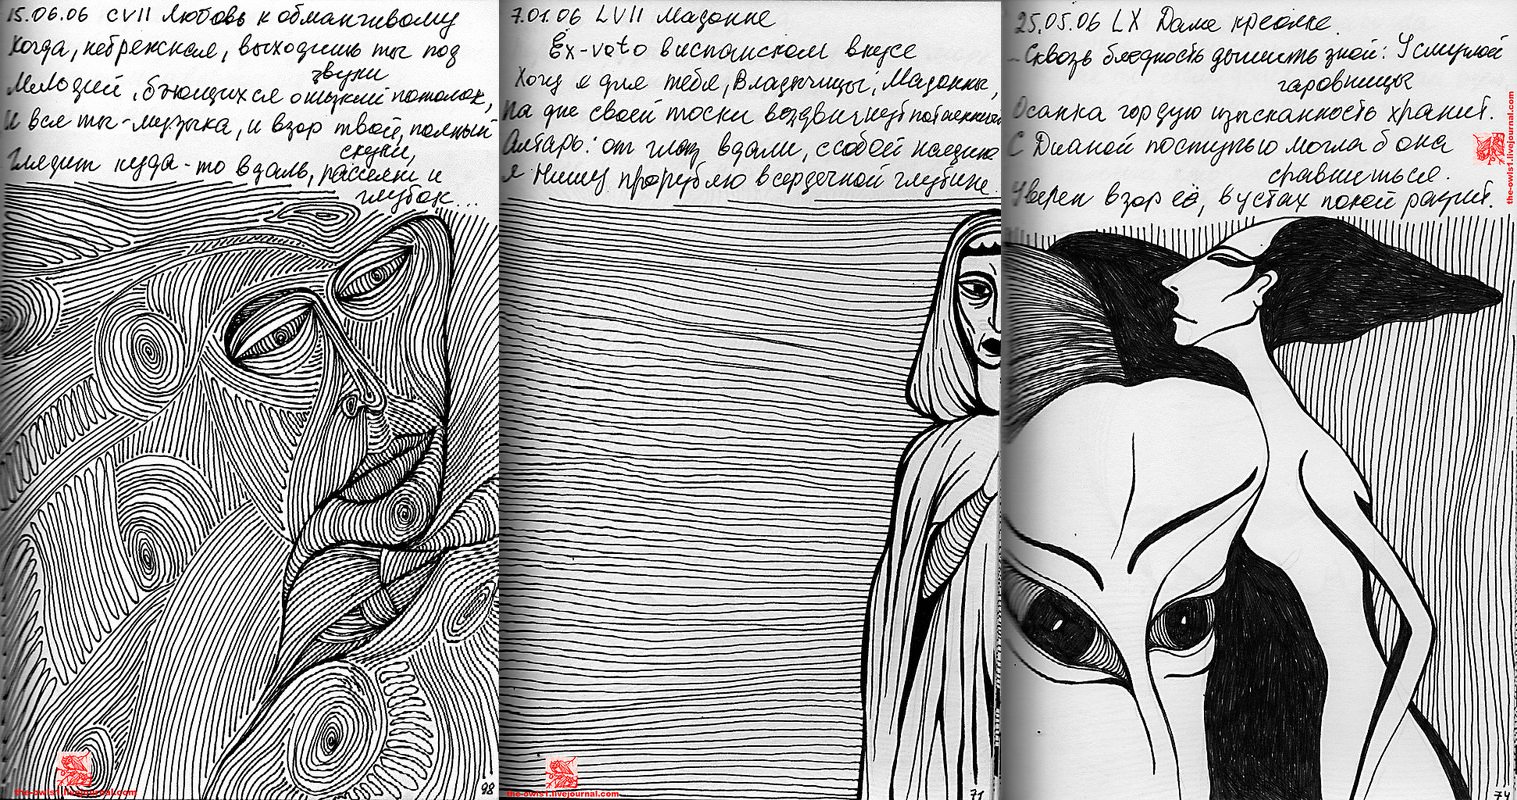 15.06.06 CVII Любовь к обманчивому
Когда, небрежная, выходишь ты под
звуки
Мелодий, бьющихся о низкий потолок,
И вся ты - музыка, и взор твой, полный
скуки,
Глядит куда-то вдаль, рассеян и
глубок...
98
the-owls1.livejournal.com
7.01.06 LVII Мадонне
Ex-voto в испанском вкусе
Хочу я для тебя, Владычицы, Мадонны,
На дне своей тоски воздвигнуть потаенный
Алтарь: от глаз вдали, с собой наедине
я Нишу прорублю в сердечной глубине.
71
the-owls1.livejournal.com
25.05.06 LX Даме креолке.
Сквозь бледность дышит зной: У смуглой
чаровницы
Осанка гордую изысканность хранит.
С Дианой поступью могла б она
сравниться.
Уверен взор её, в устах покой разлит.
74
the-owls1.livejournal.com